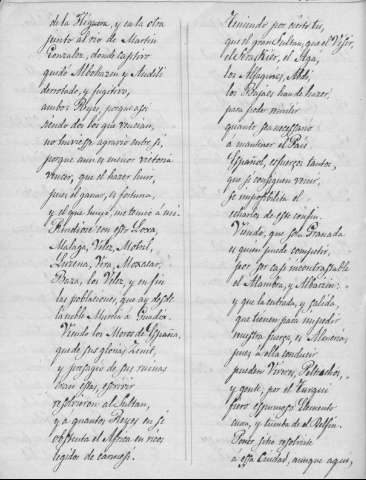 de la Higuera, y en la otra
junto al rio de Martin
Gonzalez, donde captivo
quedó Albohazen y Audilí
derrotado, y fugitivo,
ambos Reyes, porque assi
siendo dos los que vencian,
no huviesse agravio entre si,
porque aun es menor victoria
vencer, que el hacer huir,
pues el ganar, es fortuna,
y el que huyó, me temió a mi.
Rindiose con esto Loxa,
Malaga, Velez, Motril,
Lucena, Vera, Moxacar,
Baza, los Velez, y en fin
las poblaciones, que ay desde
la noble Murcia a Guadix.
Viendo los Moros de España,
que de sus glorias Zenit,
y presagio de sus ruinas
eran estas, escrivir
resolvieron al Sultan,
y a quantos Reyes en si
obstenta el Africa en ricos
legilos de carmesi.
Teniendo por cierto tu,
que el gran Sultan, que el Visir,
el Aga,
los Alfaquies,
los Baxaes han de hacer,
para poder
quanto sea necessario
a mantener el Pais
Español, esfuerzos tantos,
que, si consiguen venir,
se imposibilita el
echarlos de este confin.
Viendo, que sola Granada
es quien puede competir,
por ser tan incontrastable
el Alambra, y Albaicin:
y que la entrada, y salida,
que tienen para impedir
nuestra fuerza, es Almeria,
pues a ella conducir
pueden Viveres, Peltrechos,
y gente, por el
fiero espumoso Elemento
cuna, y tumba de el Delfin.
Poner sitio resolviste
a essa Ciudad, aunque aqui,